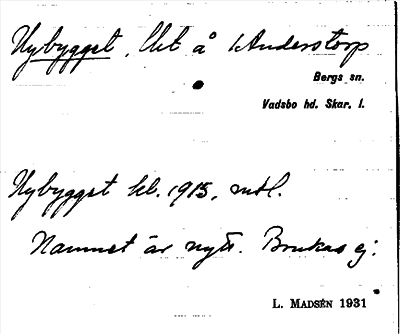 Nybygget, lht å Anderstorp
Bergs sn.
Vadsbo hd. Skar. l.
Nybygget hl. 1915, mtl.
Namnet är nytt. Brukas ej.
L. MADSÉN 1931